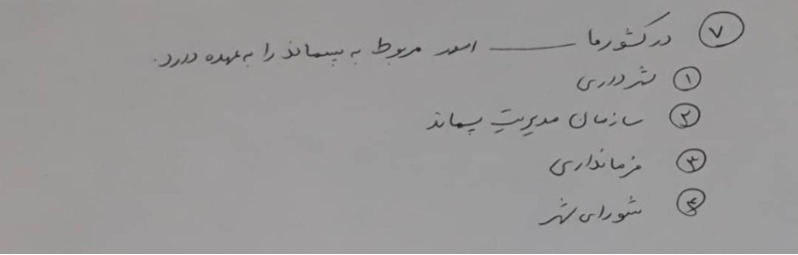 ۷ در کشور ما ــــــ امور مربوط به پسماند را به عهده دارد.
۱ شهرداری
۲ سازمان مدیریتِ پسماند
۳ فرمانداری
۴ شورای شهر